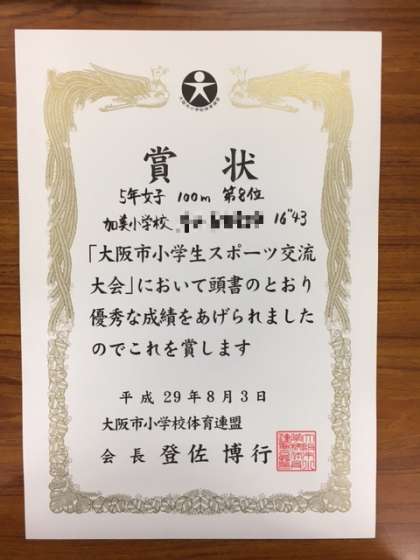 賞状
5年女子 100m 第8位
加美小学校 16"43
「大阪市小学生スポーツ交流
大会」において頭書のとおり
優秀な成績をあげられました
のでこれを賞します
平成29年8月3日
大阪市小学校体育連盟
会長 登佐 博行